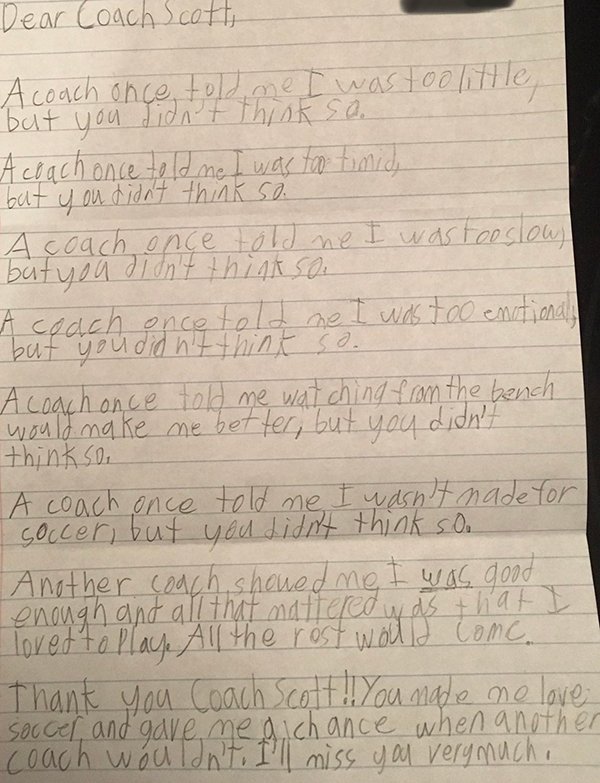 Dear Coach Scott,
A coach once told me I was too little,
but you didn't think so.
A coach once told me I was too timid,
but you didn't think so.
A coach once told me I was too slow,
but you didn't think so.
A coach once told me I was too emotional,
but you didn't think so.
A coach once told me watching from the bench
would make me better, but you didn't
think so.
A coach once told me I wasn't made for
soccer, but you didn't think so.
Another coach showed me I was good
enough and all that mattered was that I
loved to play. All the rest would come.
Thank you Coach Scott!! You made me love
soccer and gave me a chance when another
coach wouldn't. I'll miss you very much.